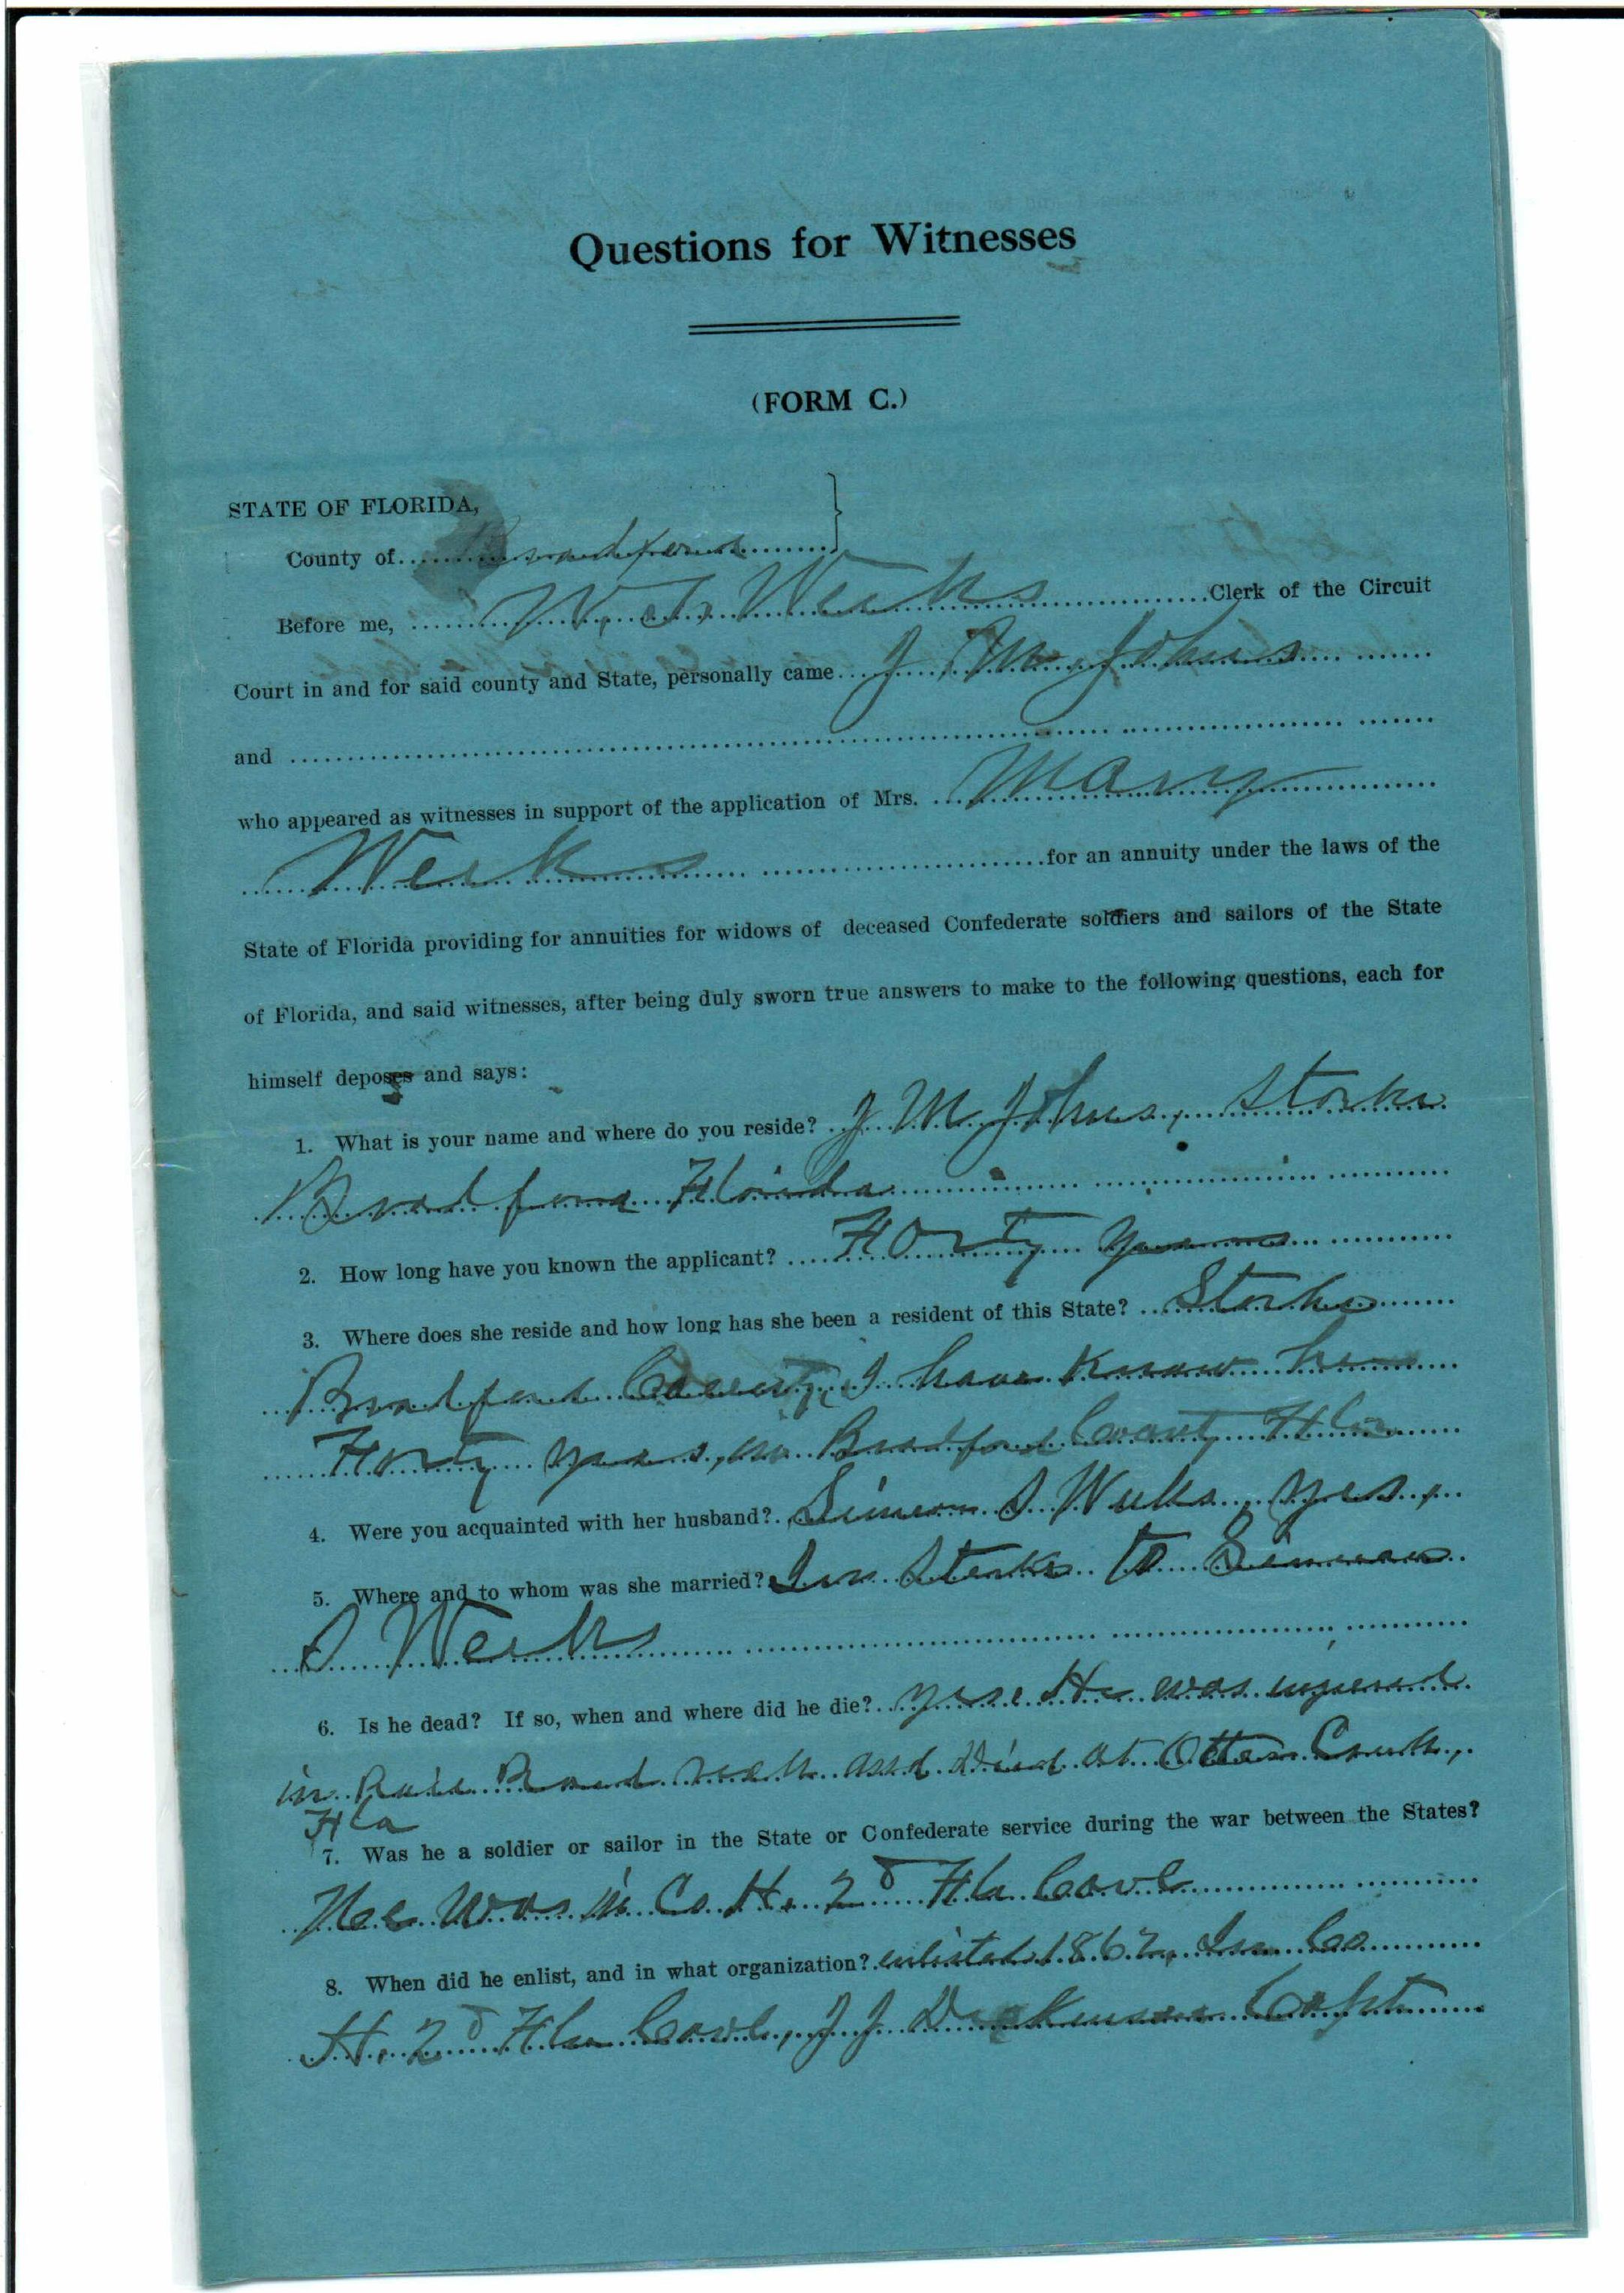 Questions for Witnesses
(FORM C.)
STATE OF FLORIDA,
County of Bradford
Before me, Weeks Clerk of the Circuit
Court in and for said county and State, personally came J. M. Johns
and
who appeared as witnesses in support of the application of Mrs. Mary
Weeks for an annuity under the laws of the
State of Florida providing for annuities for widows of deceased Confederate soldiers and sailors of the State
of Florida, and said witnesses, after being duly sworn true answers to make to the following questions, each for
himself deposes and says:
1. What is your name and where do you reside? J M Johns, Starke
Bradford Florida
2. How long have you known the applicant? Forty years
3. Where does she reside and how long has she been a resident of this State? Starke
Bradford County, I have Know her
Forty years, in Bradford County Fla
4. Were you acquainted with her husband? Simeon S Weeks, yes,
5. Where and to whom was she married? In Starke to Simeon
S Weeks
6. Is he dead? If so, when and where did he die? yes. He was injured
in Rail Road and Died at Otter Creek,
Fla
7. Was he a soldier or sailor in the State or Confederate service during the war between the States?
Hee Was in Co H. 2d Fla Cavl
8. When did he enlist, and in what organization? enlisted 1862, In Co
H. 2d Fla Cavl, J J Dickinson Capt